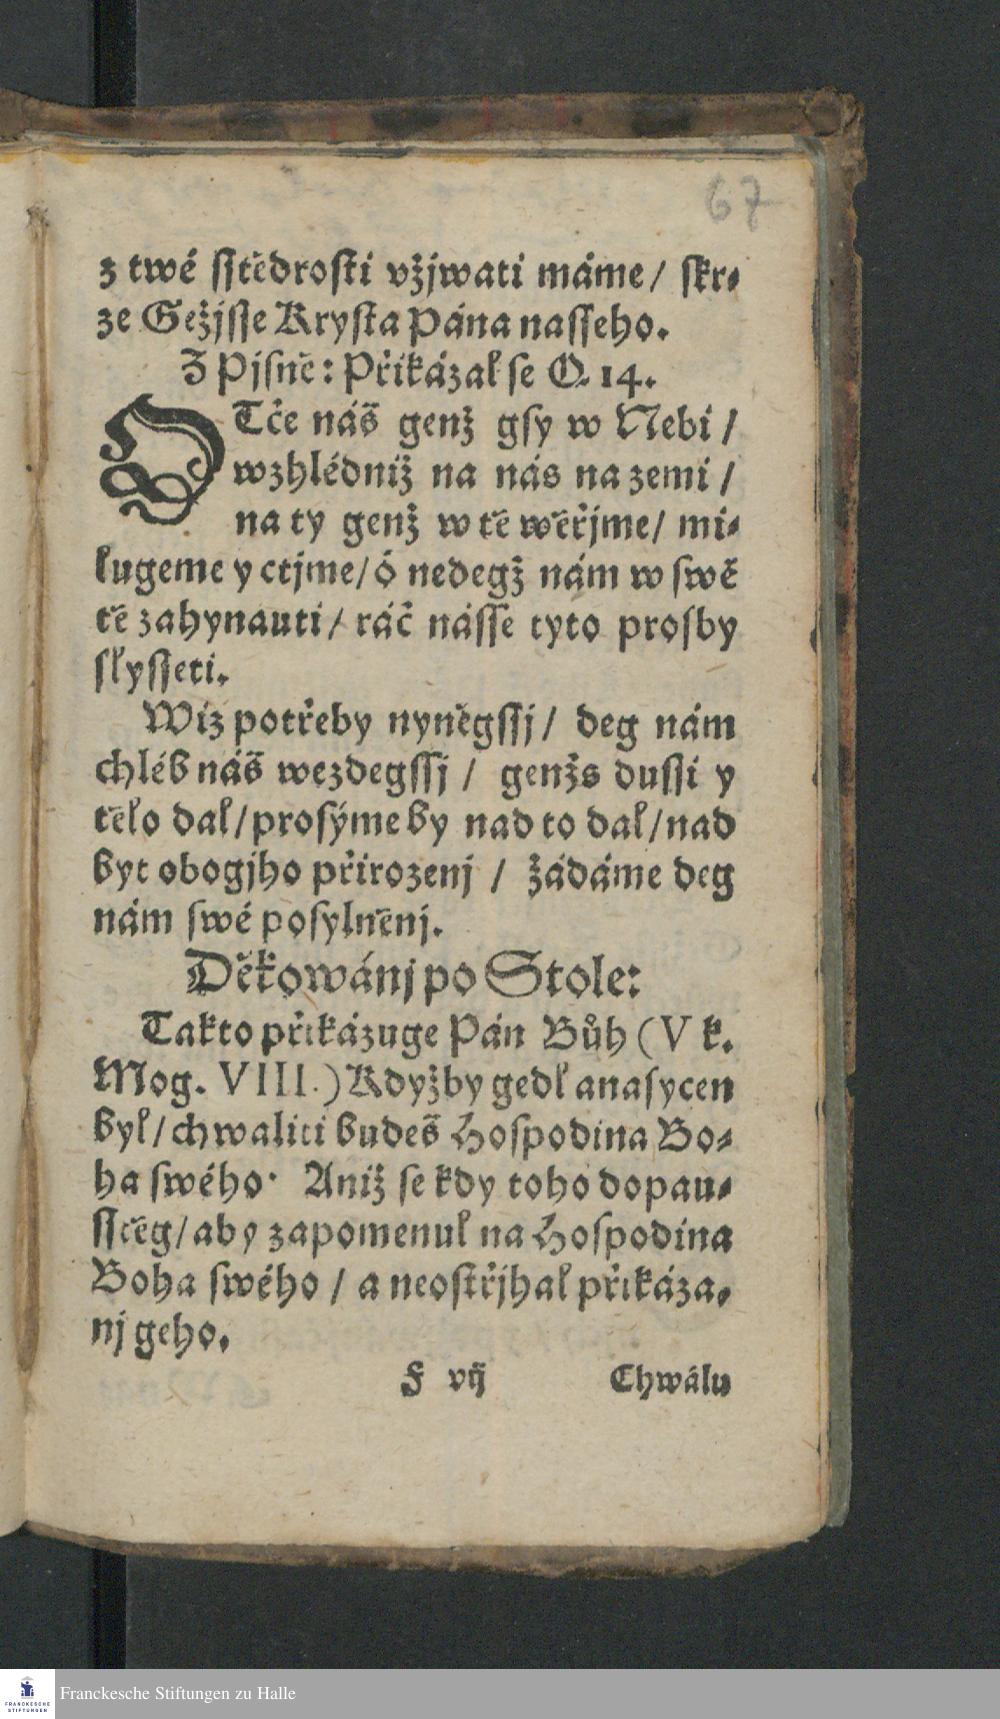 67
z twé sstědrosti vžjwati máme / skr-
ze Gežjsse Krysta Pána nasseho.
Z Pjsně: Přikázal se O. 14.
OTče náš genž gsy w Nebi /
wzhlédniž na nás na zemi /
na ty genž w tě wěřjme / mi-
lugeme y ctjme / ó nedegž nám w swě
tě zahynauti / ráč násse tyto prosby
slysseti.
Wiz potřeby nyněgssj / deg nám
chléb náš wezdegssj / genžs dussi y
tělo dal / prosýme by nad to dal / nad
byt obogjho přirozenj / žádáme deg
nám swé posylněnj.
Děkowánj po Stole:
Takto přikázuge Pán Bůh (V k.
Mog. VIII.) Kdyžby gedl a nasycen
byl / chwaliti budeš Hospodina Bo-
ha swého. Aniž se kdy toho dopau-
sstěg / aby zapomenul na Hospodina
Boha swého / a neostřjhal přikáza-
nj geho.
F vij Chwálu
Franckesche Stiftungen zu Halle
FRANCKESCHE
STIFTUNGEN